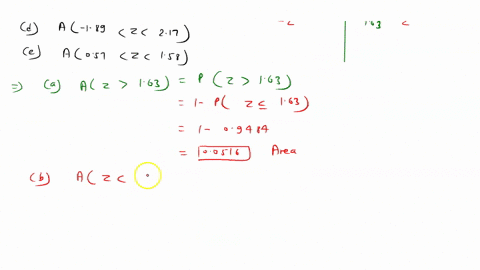 (d) A(-1.89 < z < 2.17)
(e) A(0.57 < z < 1.58)
-z 1.63 z
⇒ (a) A(z > 1.63) = P(z > 1.63)
= 1 - P(z ≤ 1.63)
= 1 - 0.9484
= 0.0516 Area
(b) A(z <